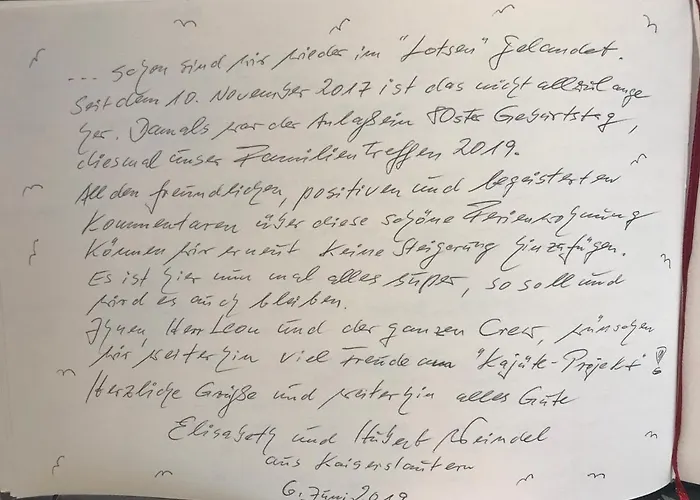 ... schon sind wir wieder im "Lotsen" gelandet.
Seit dem 10. November 2017 ist das nicht allzulange
her. Damals war der Anlaß ein 80ster Geburtstag,
diesmal unser Familientreffen 2019.
All den freundlichen, positiven und begeisterten
Kommentaren über diese schöne Ferienwohnung
können wir erneut keine Steigerung hinzufügen.
Es ist hier nun mal alles super, so soll und
wird es auch bleiben.
Ihnen, Herr Leon und der ganzen Crew, wünschen
wir weiterhin viel Freude am "Kajüte-Projekt"!
Herzliche Grüße und weiterhin alles Gute
Elisabeth und Hubert
aus Kaiserslautern
6. Juni 2019